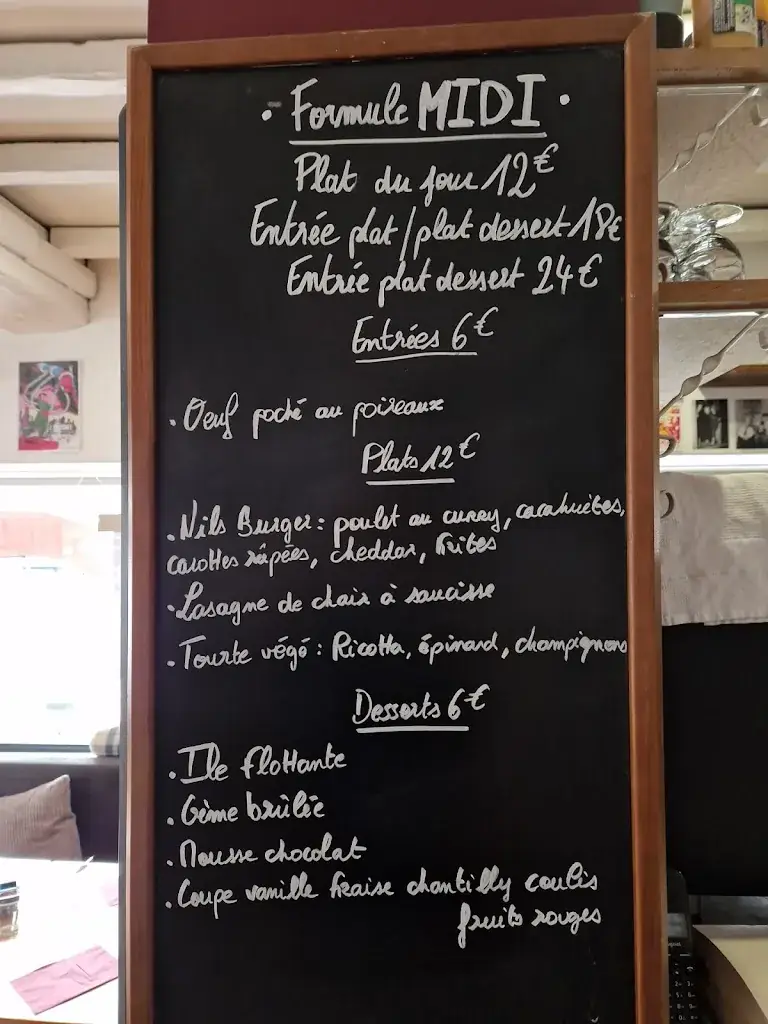 · Formule MIDI ·
Plat du jour 12€
Entrée plat/plat dessert 18€
Entrée plat dessert 24€
Entrées 6€
· Oeuf poché au poireaux
Plats 12€
· Nils Burger : poulet au curry, cacahuètes,
carottes râpées, cheddar, frites
· Lasagne de chair à saucisse
· Tourte végé : Ricotta, épinard, champignons
Desserts 6€
· Ile flottante
· Crème brûlée
· Mousse chocolat
· Coupe vanille fraise chantilly coulis
fruits rouges